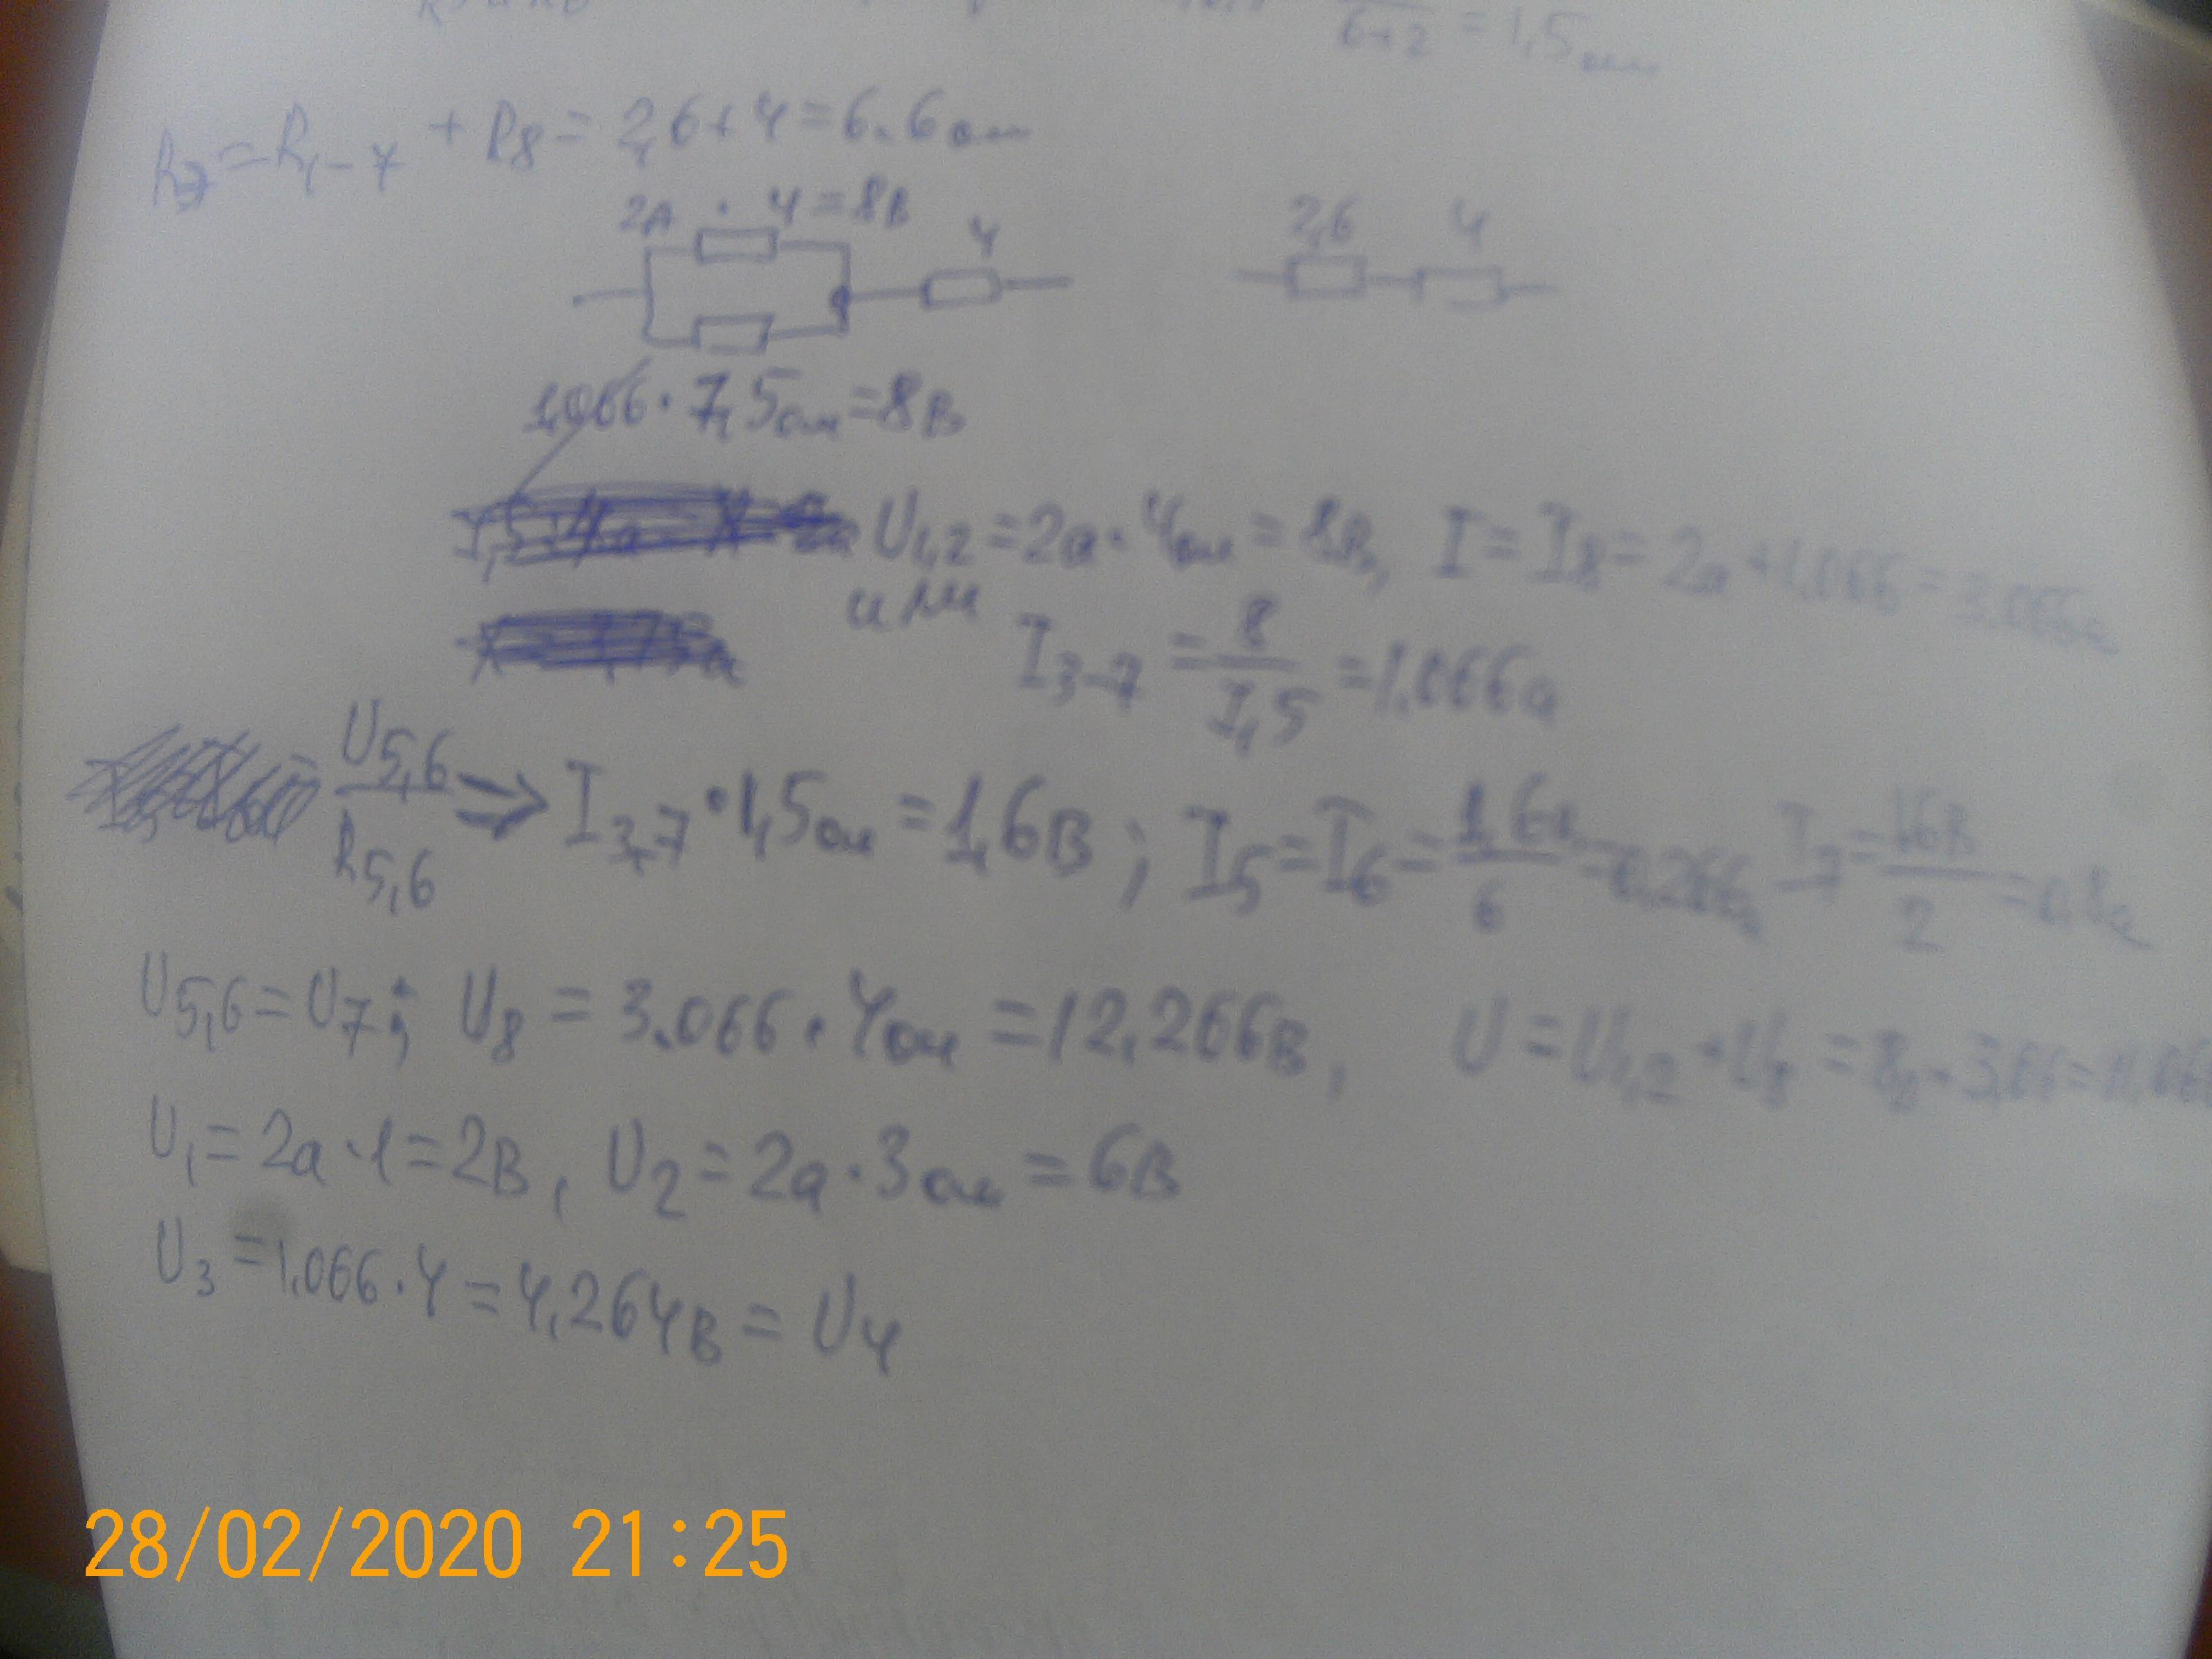 6+2 = 1,5ом
RЭ = R1-7 + R8 = 2,6 + 4 = 6.6 ом
2А · 4 = 8В
4
2,6 4
1,066 · 7,5ом = 8В
U1,2 = 2а · 4ом = 8В, I = I8 = 2а + 1.066 = 3.066а
или
I3-7 = 8/7,5 = 1.066а
U5,6/R5,6 ⇒ I3,7 · 1,5ом = 1,6В ; I5 = I6 = 1,6В/6 = 0,266а I7 = 1.6В/2 = 0.8а
U5,6 = U7; U8 = 3.066 · 4ом = 12,266В, U = U1,2 + U8 = 8
U1 = 2а · 1 = 2В, U2 = 2а · 3ом = 6В
U3 = 1.066 · 4 = 4,264В = U4
28/02/2020 21:25